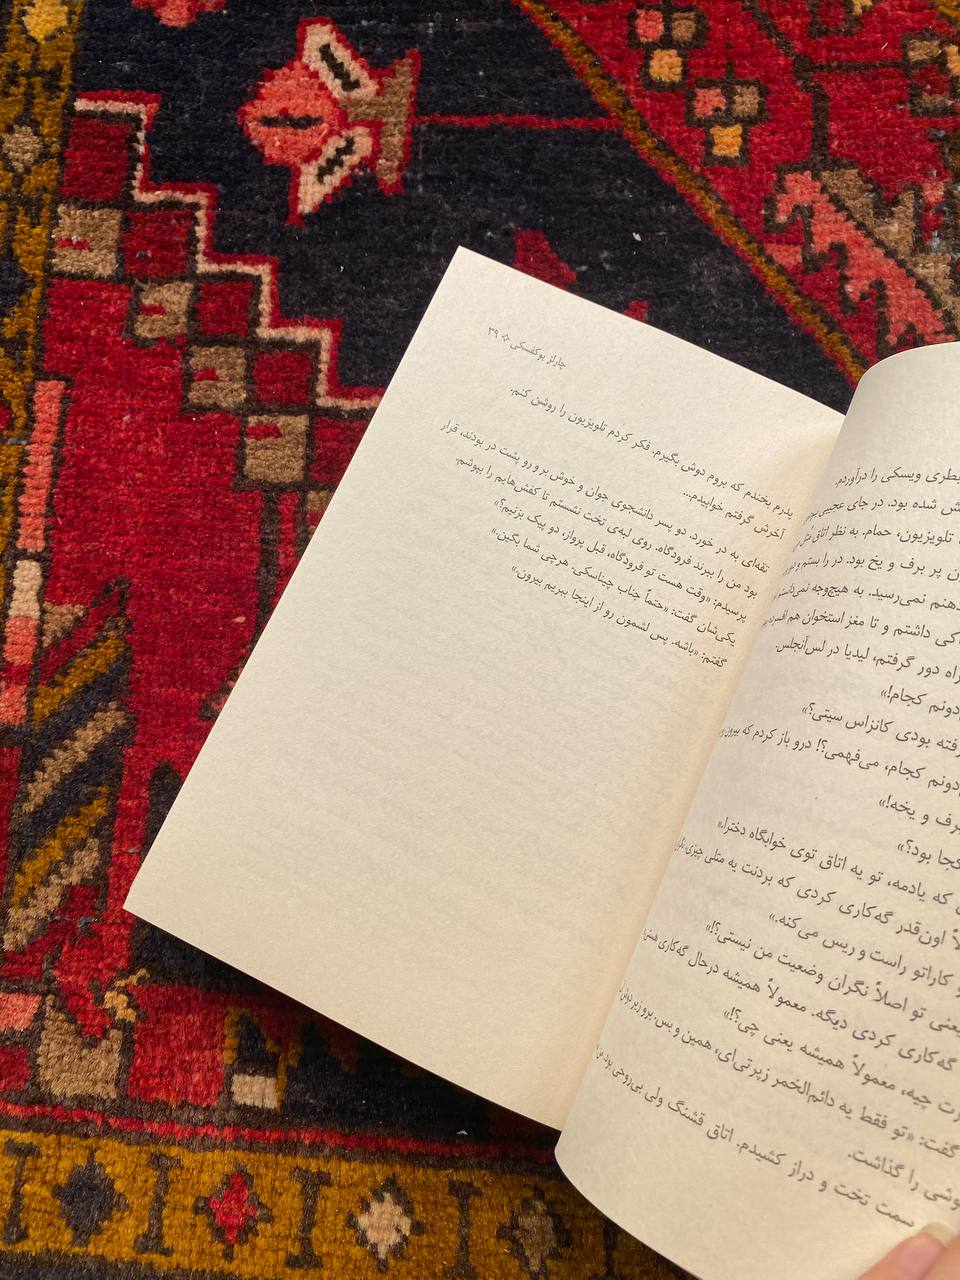 بطری ویسکی را درآوردم.
ش شده بود. در جای عجیبی
تلویزیون، حمام. به نظر اتاق
ن پر برف و یخ بود. در را بستم و
دهنم نمی‌رسید. به هیچ‌وجه نمی‌دانستم
کی داشتم و تا مغز استخوان هم افسرده
راه دور گرفتم، لیدیا در لس‌آنجلس.
دونم کجام!»
فته بودی کانزاس سیتی؟»
دونم کجام، می‌فهمی؟! درو باز کردم که بیرون
برف و یخه!»
کجا بود؟»
که یادمه، تو یه اتاق توی خوابگاه دخترا.»
اون‌قدر گه‌کاری کردی که بردنت یه متلی چیزی.
کاراتو راست و ریس می‌کنه.»
یعنی تو اصلاً نگران وضعیت من نیستی؟!»
گه‌کاری کردی دیگه. معمولاً همیشه درحال گه‌کاری
رت چیه، معمولاً همیشه یعنی چی؟!»
گفت: «تو فقط یه دائم‌الخمر زپرتی‌ای، همین و بس. برو زیر دوش
وشی را گذاشت.
سمت تخت و دراز کشیدم. اتاق قشنگ ولی بی‌روحی بود.
چارلز بوکفسکی ✧ ۳۹
پدرم بخندم که بروم دوش بگیرم. فکر کردم تلویزیون را روشن کنم.
آخرش گرفتم خوابیدم...
تقه‌ای به در خورد. دو پسر دانشجوی جوان و خوش بر و رو پشت در بودند، قرار
بود من را ببرند فرودگاه. روی لبه‌ی تخت نشستم تا کفش‌هایم را بپوشم.
پرسیدم: «وقت هست تو فرودگاه، قبل پرواز، دو پیک بزنیم؟»
یکی‌شان گفت: «حتماً جناب چیناسکی. هرچی شما بگین.»
گفتم: «باشه. پس لشمون رو از اینجا ببریم بیرون.»